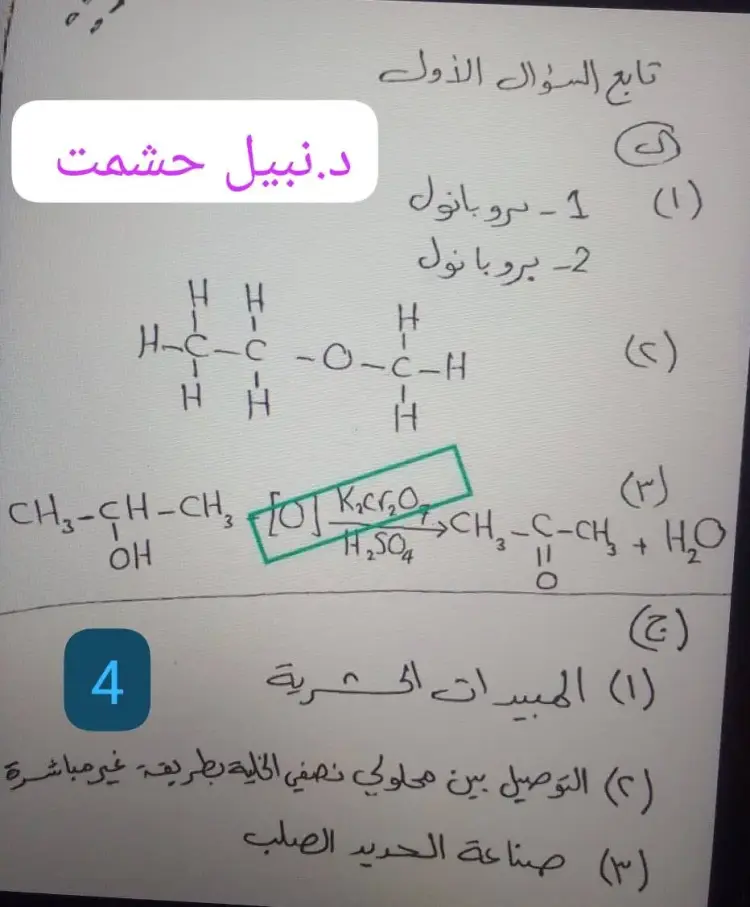 تابع السؤال الأول
د.نبيل حشمت
(١) 1- بروبانول
2- بروبانول
(٢)
H H H
H-C-C-O-C-H
H H H
(٣)
CH₃-CH-CH₃ -[O] K₂Cr₂O₇ → CH₃-C-CH₃ + H₂O
OH H₂SO₄ O
(ج)
4
(١) المبيدات الحشرية
(٢) التوصيل بين محلولي نصفي الخلية بطريقة غير مباشرة
(٣) صناعة الحديد الصلب